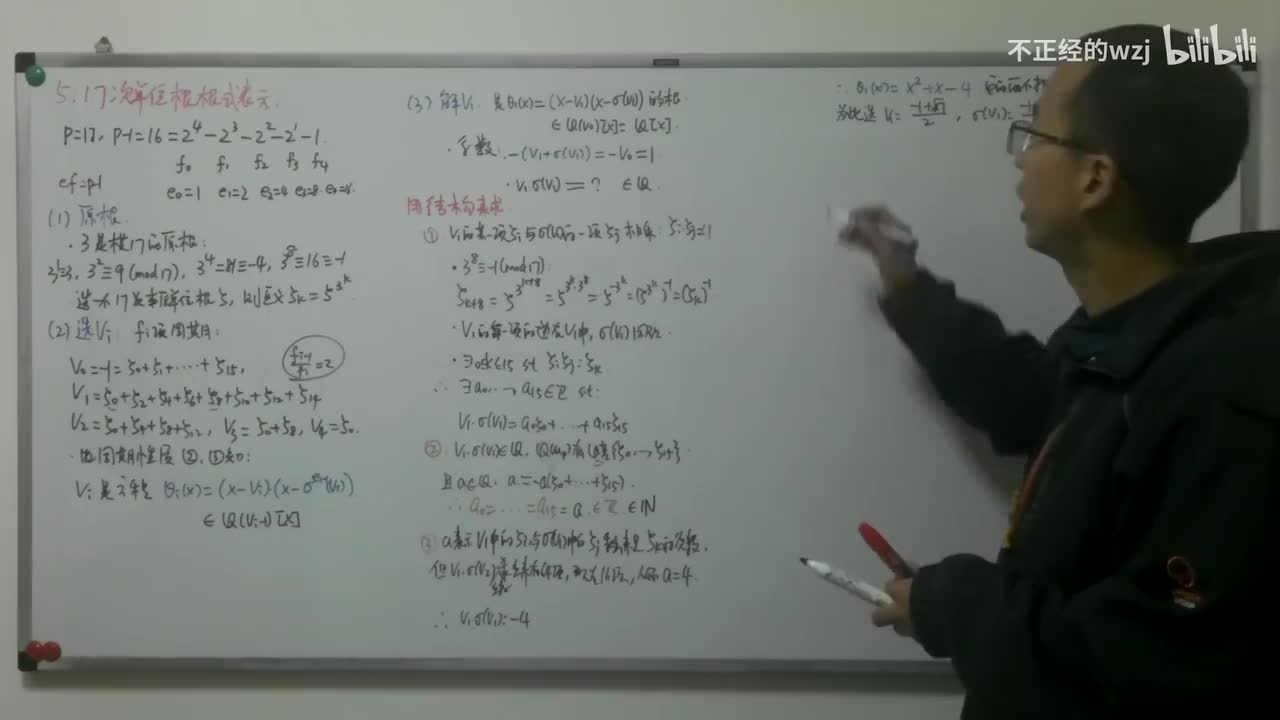 不正经的wzj bilibili
5. 17次单位根根式表示.
P=17, P-1=16=2⁴-2³-2²-2¹-1.
f₀ f₁ f₂ f₃ f₄
ef=p-1 e₀=1 e₁=2 e₂=4 e₃=8
(1) 原根.
· 3是模17的原根:
3¹≡3, 3²≡9 (mod 17), 3⁴≡81≡-4, 3⁸≡16≡-1
选一个17次本原单位根ζ, 则定义 ζₖ=ζ^{3^k}
(2) 选Vᵢ: fᵢ项周期:
V₀=-1=ζ₀+ζ₁+⋯+ζ₁₅,
f_{i-1}/f_i=2
V₁=ζ₀+ζ₂+ζ₄+ζ₆+ζ₈+ζ₁₀+ζ₁₂+ζ₁₄
V₂=ζ₀+ζ₄+ζ₈+ζ₁₂, V₃=ζ₀+ζ₈, V₄=ζ₀.
· 由周期性质②,③知:
Vᵢ是方程 θᵢ(x)=(x-Vᵢ)(x-σ^{e_{i-1}}(Vᵢ))
∈Q(V_{i-1})[x]
(3) 解V₁. 是θ₁(x)=(x-V₁)(x-σ(V₁))的根
∈Q(V₀)[x]=Q[x].
· 系数: -(V₁+σ(V₁))=-V₀=1
· V₁σ(V₁)=? ∈Q.
用结构来求
① V₁的某一项ζᵢ与σ(V₁)的一项ζⱼ相乘: ζᵢζⱼ=1
· 3⁸≡-1(mod 17)
ζ_{k+8}=ζ^{3^{k+8}}=ζ^{3^k·3^8}=ζ^{-3^k}=(ζ^{3^k})^{-1}=(ζₖ)^{-1}
· V₁的每一项的逆在V₁中, σ(V₁)
· ∃0≤k≤15 st ζᵢζⱼ=ζₖ
∴ ∃a₀,⋯,a₁₅∈Z st:
V₁·σ(V₁)=a₀ζ₀+⋯+a₁₅ζ₁₅
② V₁·σ(V₁)∈Q. 有 {ζ₀,⋯,ζ₁₅}
且a∈Q. a=-a(ζ₀+⋯+ζ₁₅).
∴ a₀=⋯=a₁₅=a.∈Z.∈N
③ a表示V₁中的ζᵢ与σ(V₁)中的ζⱼ ζₖ的次数.
但V₁·σ(V₁) 16项, 从而 a=4.
∴ V₁σ(V₁)=-4
∴ θ₁(x)=x²+x-4